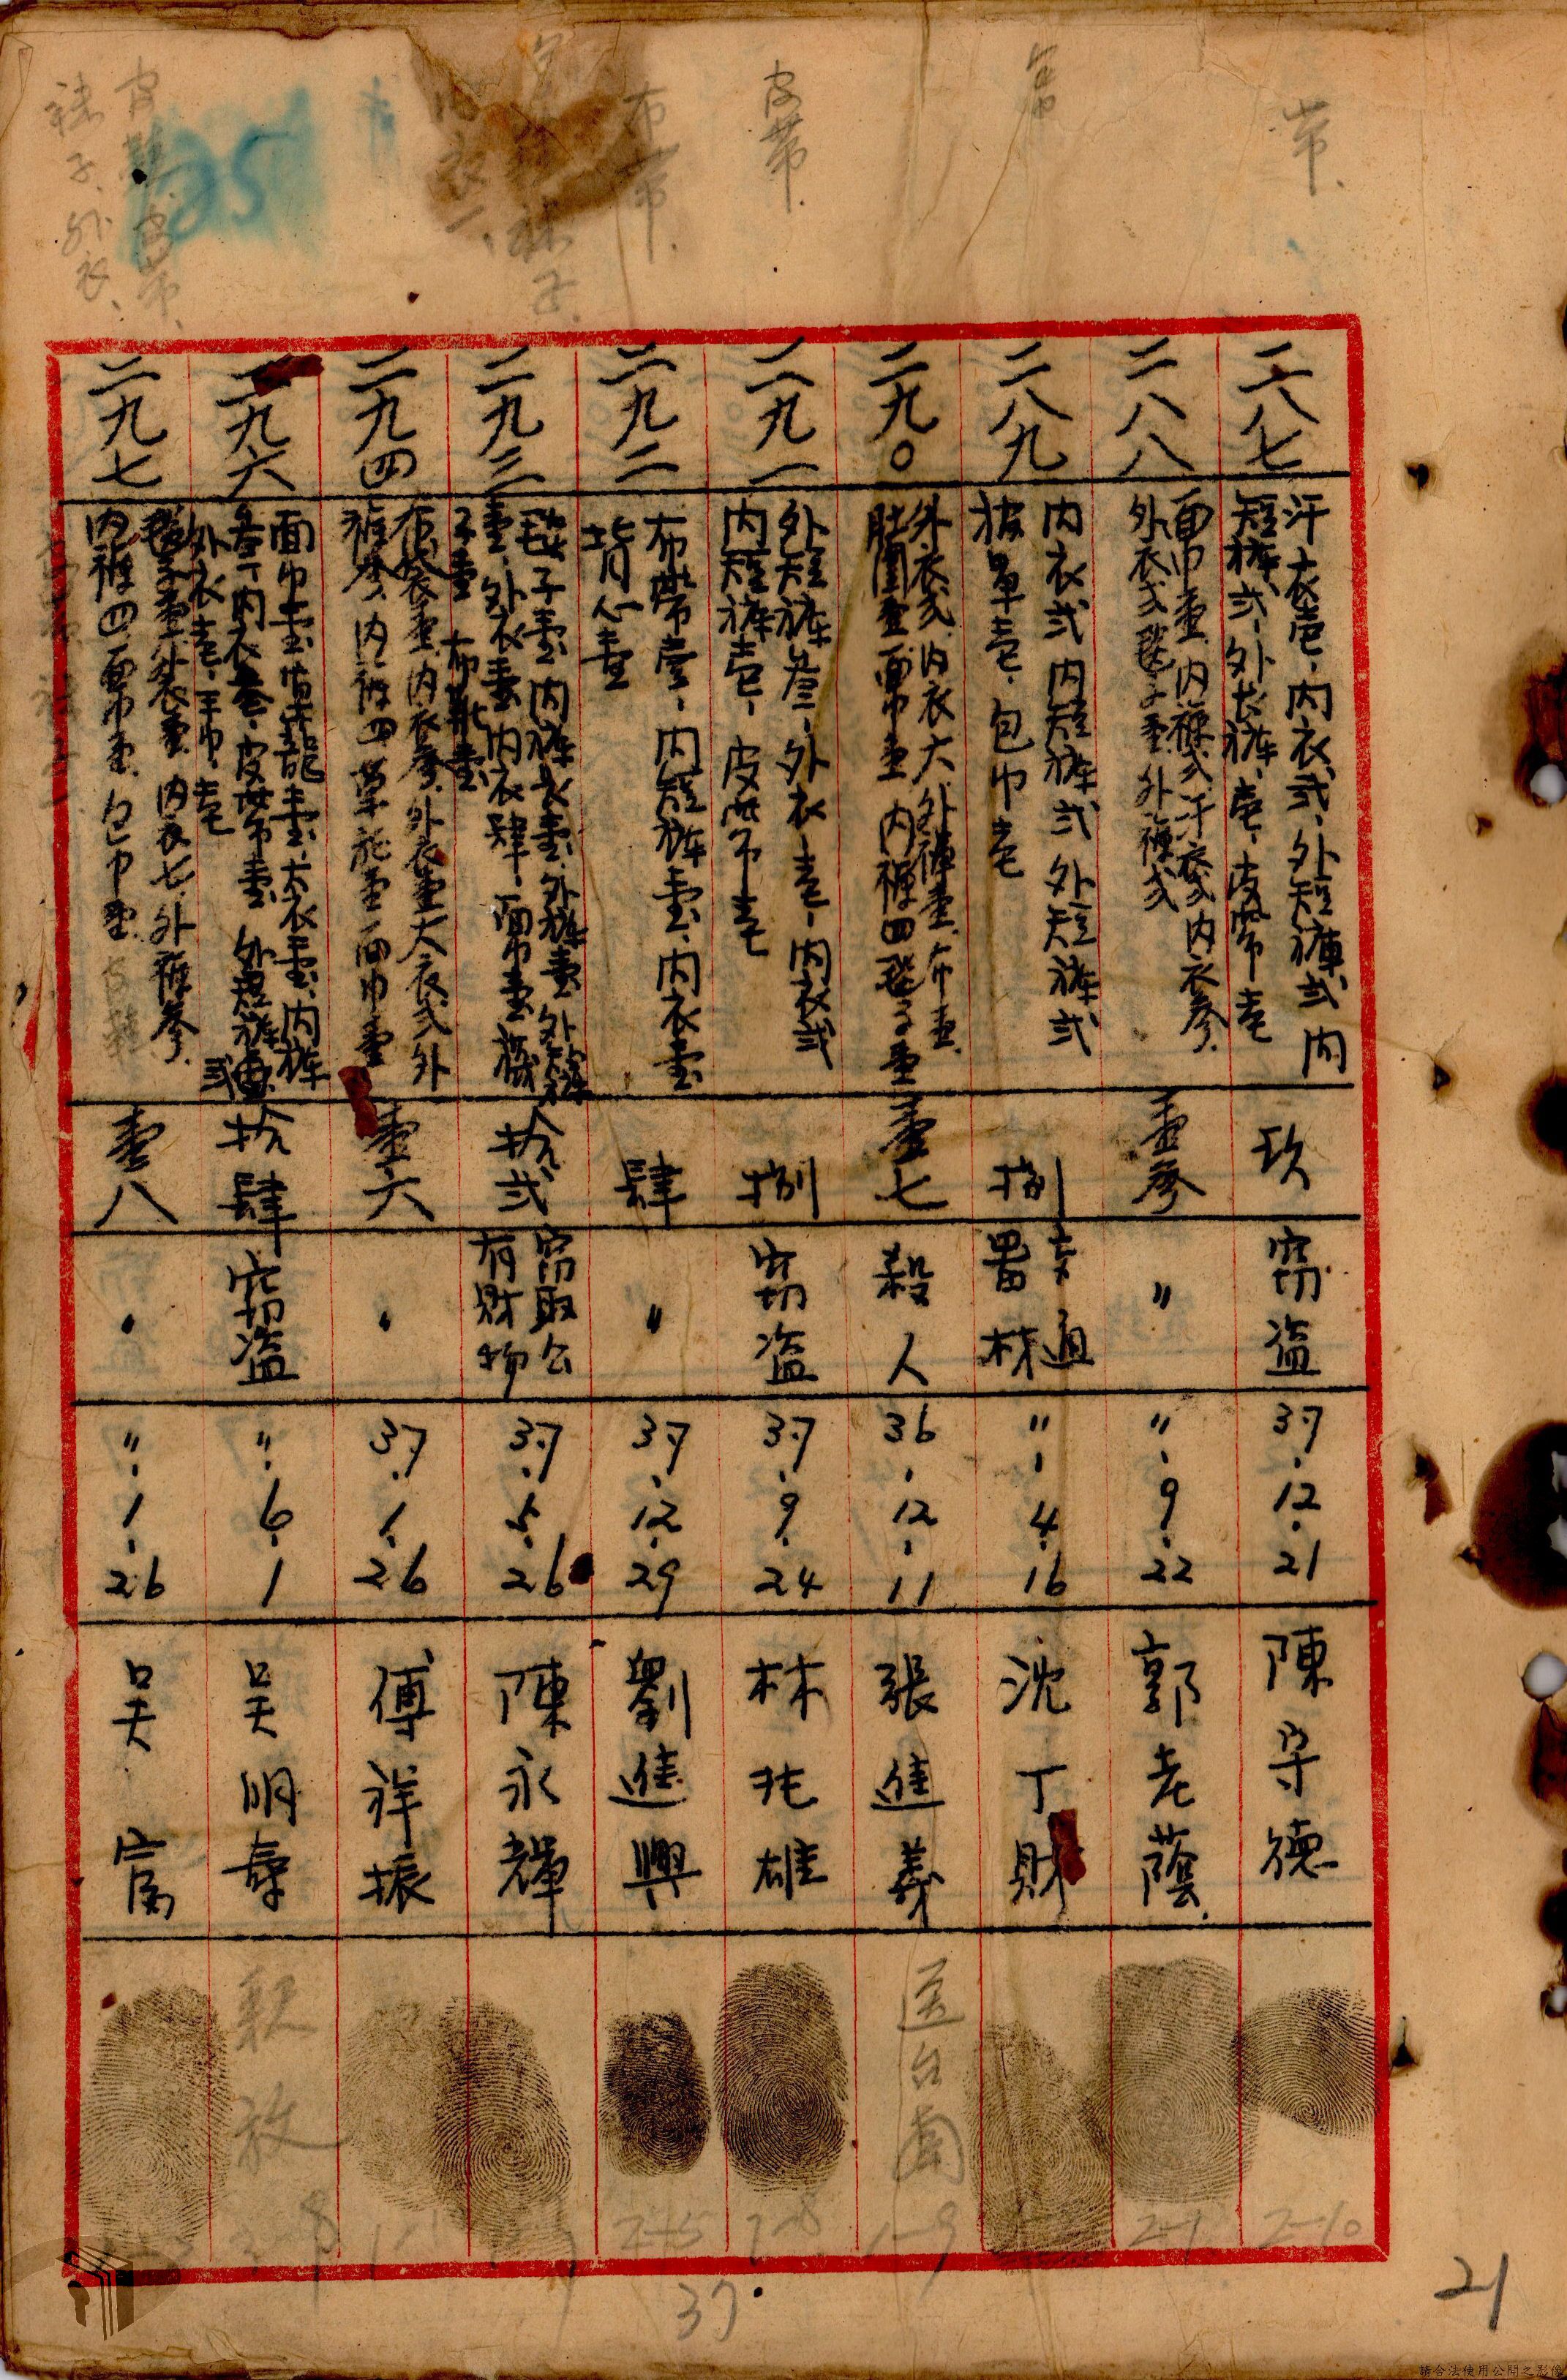 帶、
帶
皮帶、
布帶、
皮鞋、皮帶、
襪子、外衣、
25
二八七
汗衣壱、內衣弍、外短褲弍 內
短褲弍、外長褲、壱、皮帶壱
玖
竊盗
37、12、21
陳守德
二八八
面巾壹、內褲弍汗衣弍內衣參、
外衣弍毯子壹、外褲弍
壹參
〃
〃、9、22
郭老蔭
二八九
內衣弍 內短褲弍 外短褲弍
被單壱、包巾壱
捌
〃、4、16
沈丁財
二九〇
外衣弍、內衣大、外褲壹、布壹、
肚圍壹 面巾壹 內褲四毯子壹
壹七
殺人
36、12、11
張進義
送台南
二九一
外短褲叁、外衣壱、內衣弍
內短褲壱、皮帶壱
捌
竊盗
37、9、24
林兆雄
二九二
布帶壹、內短褲壹、內衣壹
背心壹
肆
〃
37、12、29
劉進興
二九三
毯子壹、內褲衣壹、外褲壹、外短褲
壹、外衣壹內衣肆、面巾壹襪
子壹 布鞋壹
拾弍
竊取公
有財物
37、5、26
陳永輝
二九四
布袋壹、內衣參、外衣壹大衣弍外
褲參、內褲四 草蓆壹 面巾壹
壹六
〃
37、1、26
傅祥振
二九六
拾肆
竊盗
〃、6、1
吴明壽
釈放
二九七
毯子壹、外衣壹、內衣七、外褲參、
內褲四、面巾壹、包巾壹、
壹八
〃
〃、1、26
吴富
37
21
請合法使用公開之影像